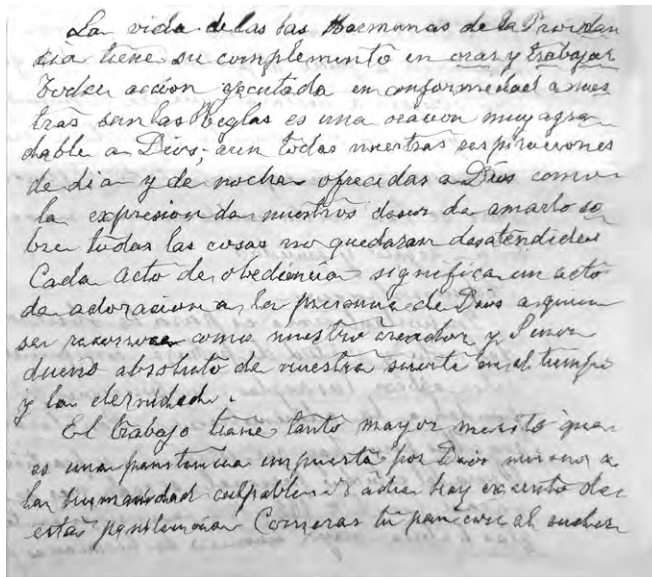 La vida de las has Hermanas de la Providen
cia tiene su complemento en orar y trabajar
Toda accion ejecutada en conformedad a nues
tras santas Reglas es una oracion muy agra
dable a Dios; aun todas nuestras respiraciones
de dia y de noche ofrecidas a Dios como
la expresion de nuestros deseos de amarlo so
bre todas las cosas no quedaran desatendidas
Cada acto de obediencia significa un acto
de adoracion a la persona de Dios a quien
se reconoce como nuestro creador y Señor
dueño absoluto de nuestra suerte en el tiempo
y la eternidad.
El trabajo tiene tanto mayor merito que
es una penitencia impuesta por Dios mismo a
la humanidad culpable nadie hay exento de
esta penitencia Comeras tu pan con el sudor